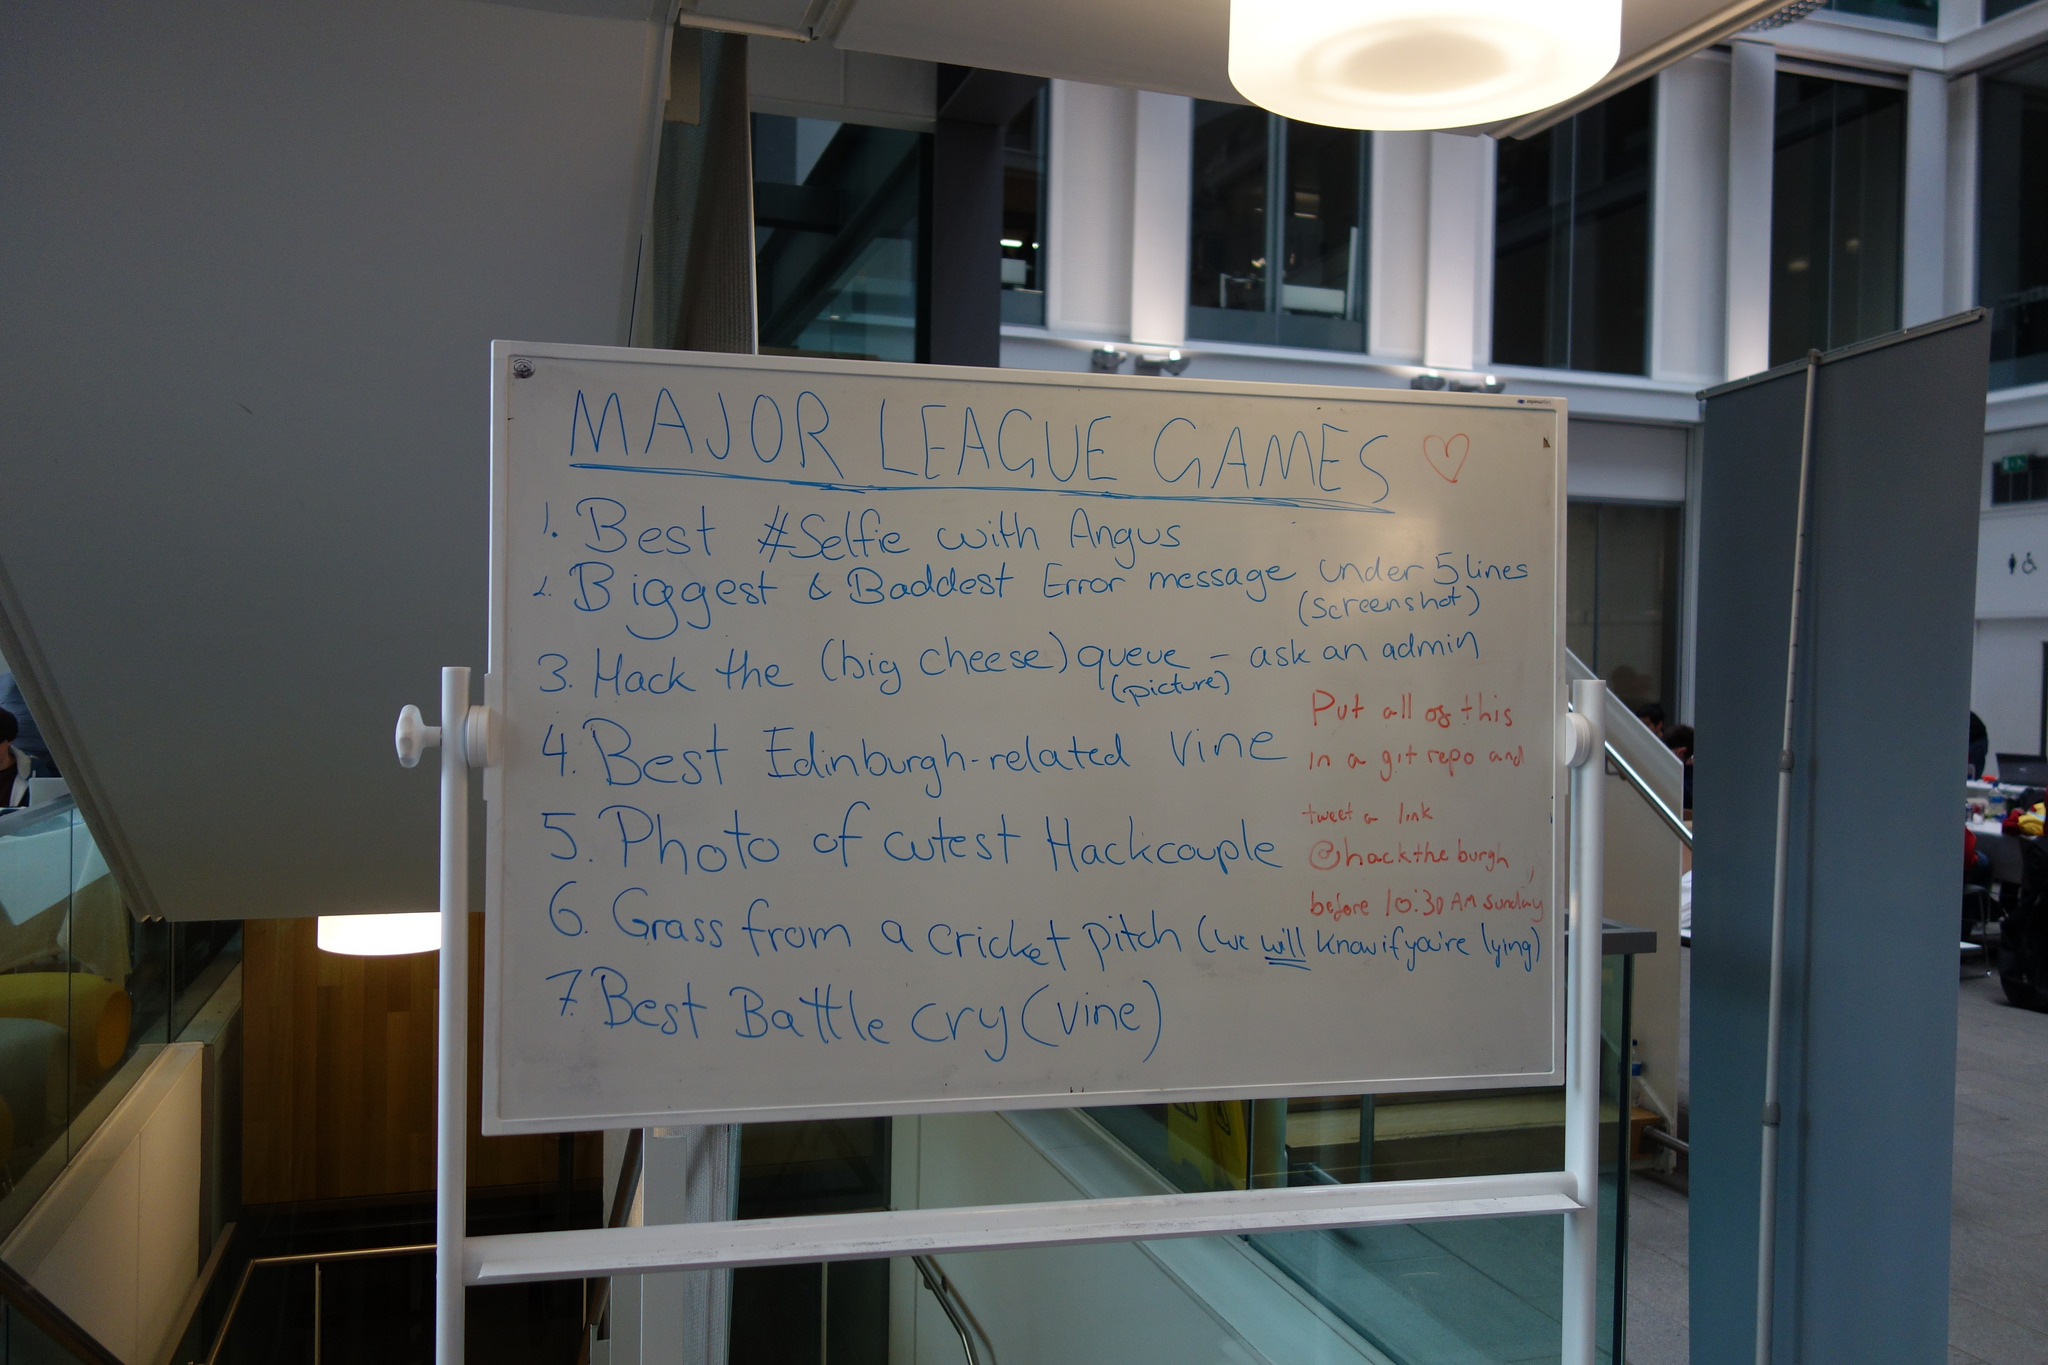 MAJOR LEAGUE GAMES
1. Best #Selfie with Angus
2. Biggest & Baddest Error message under 5 lines
(screenshot)
3. Hack the (big cheese) queue - ask an admin
(picture)
4. Best Edinburgh-related Vine
5. Photo of cutest Hackcouple
6. Grass from a cricket pitch (we will know if you're lying)
7. Best Battle cry (vine)
Put all of this
in a git repo and
tweet a link
@hacktheburgh,
before 10:30 AM sunday